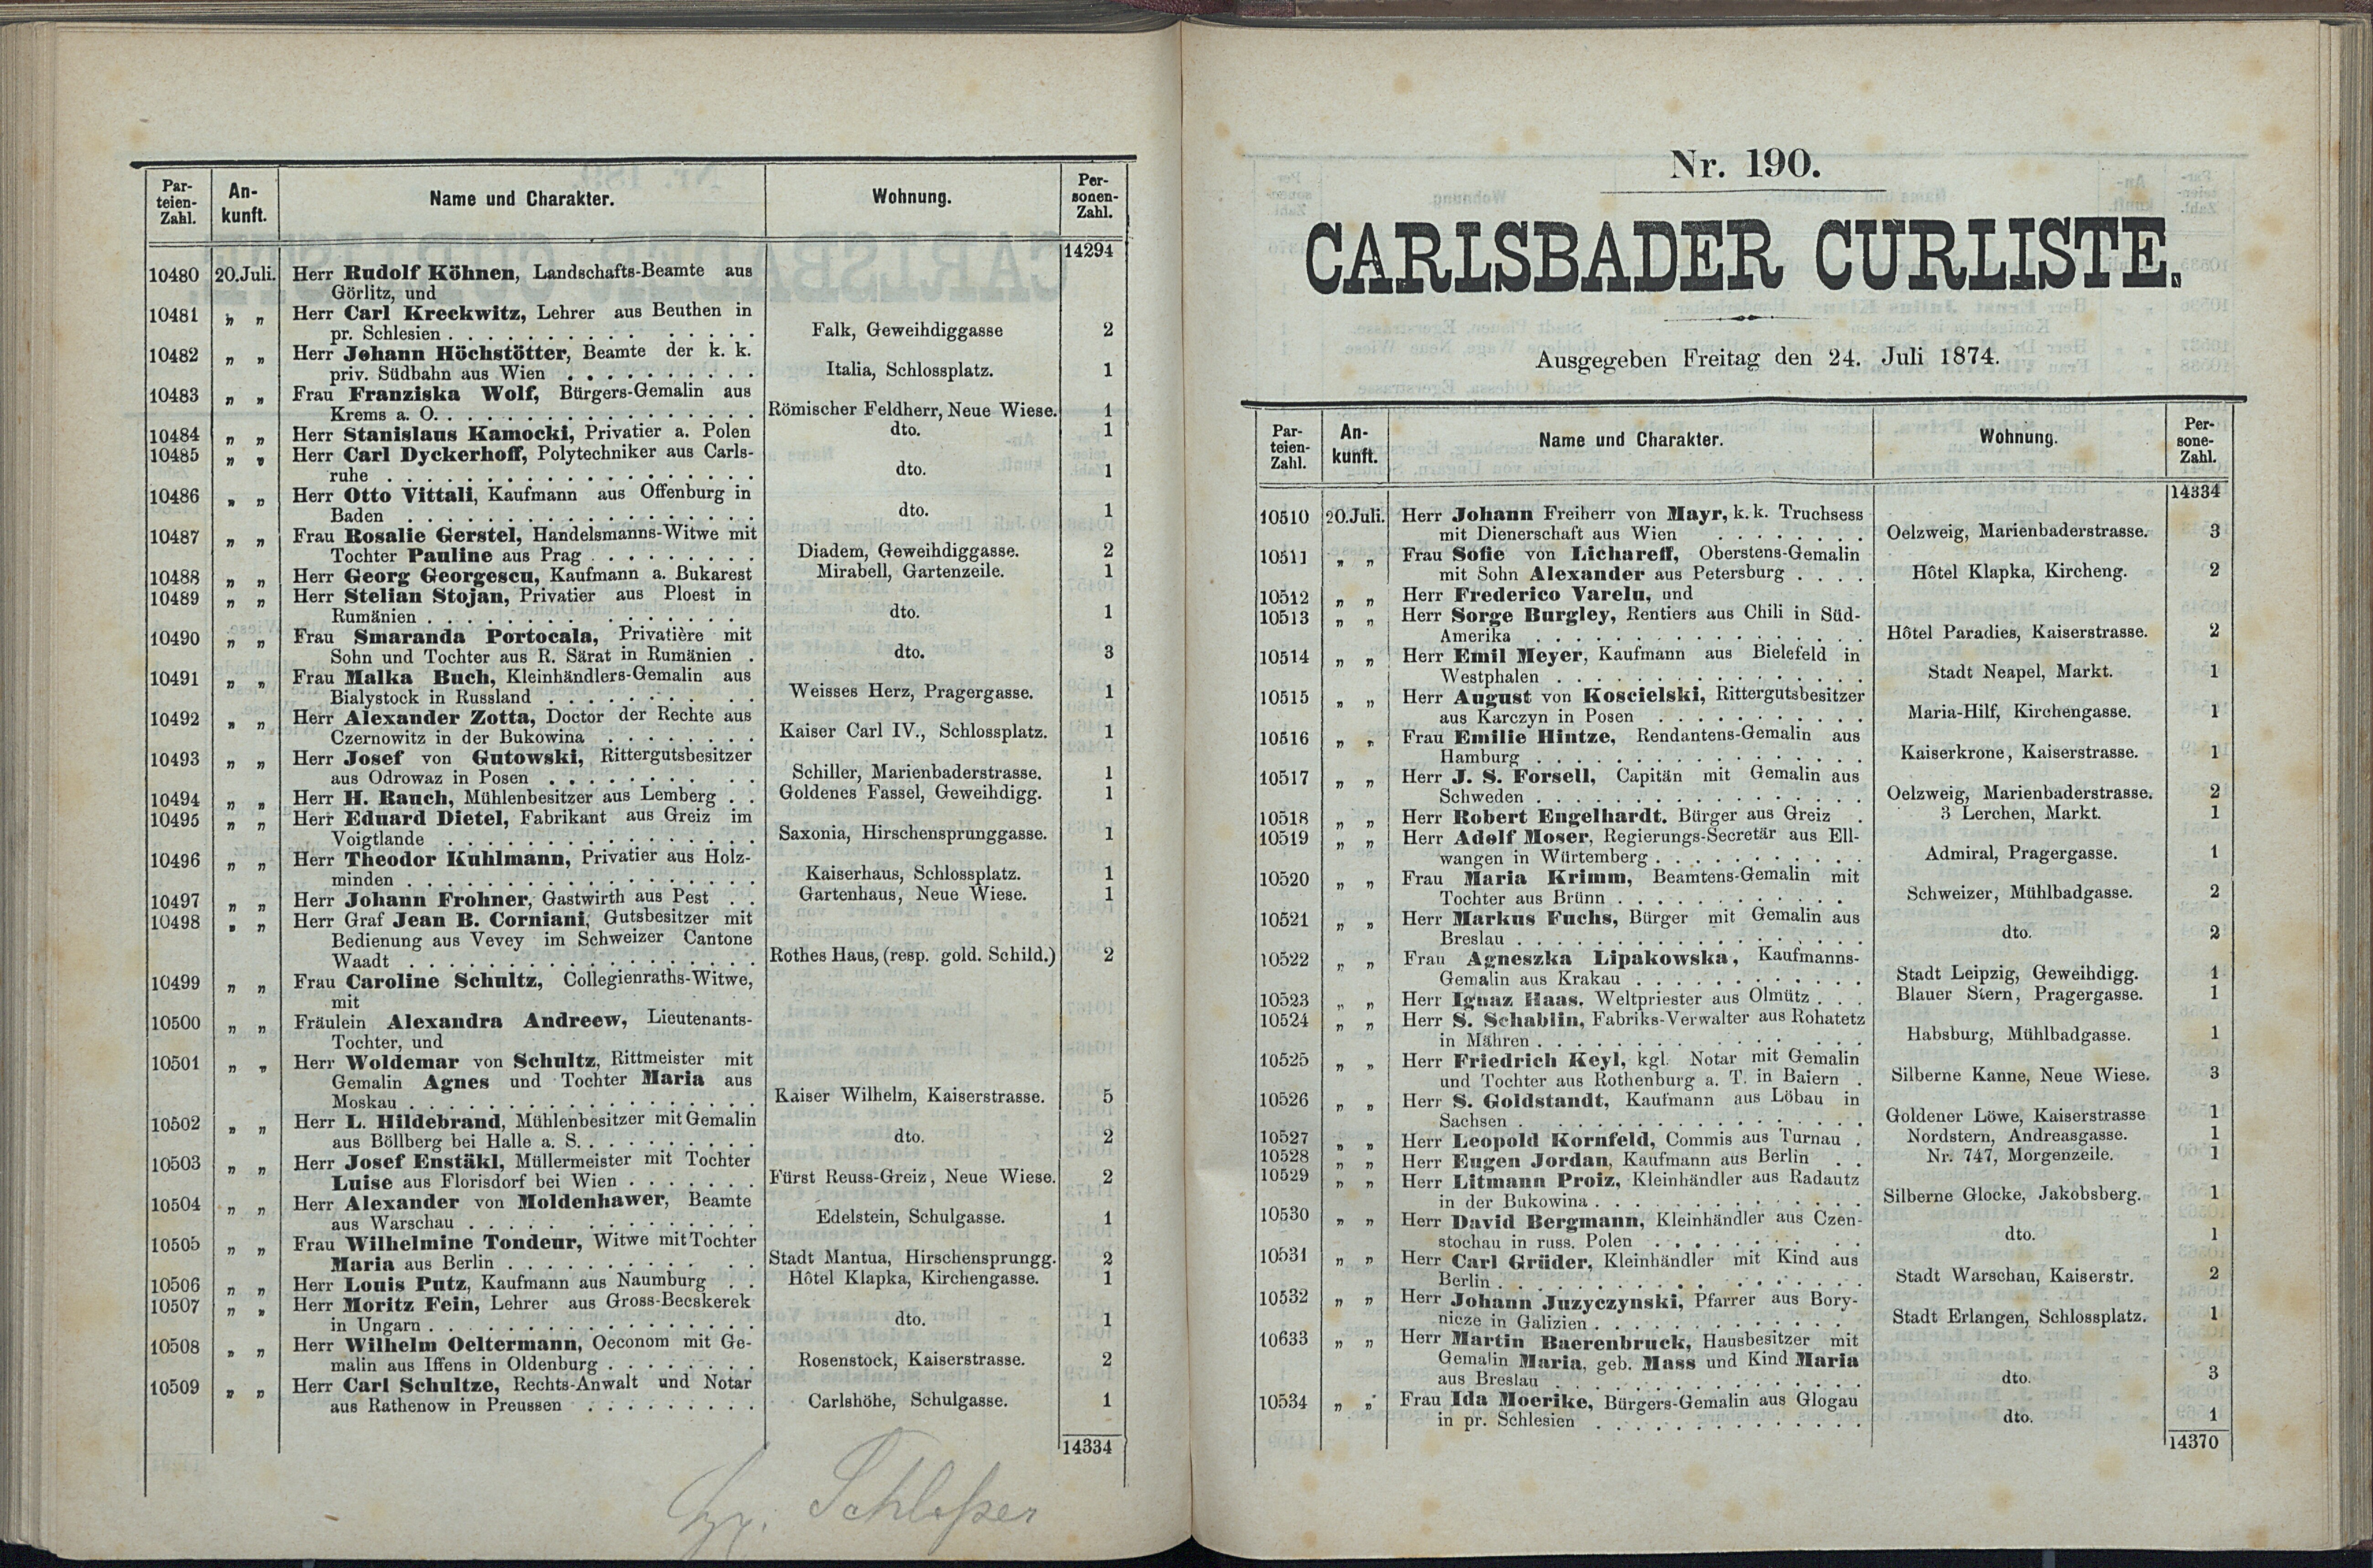 Par-
teien-
Zahl.
An-
kunft.
Name und Charakter.
Wohnung.
Per-
sonen-
Zahl.
14294
10480 20.Juli. Herr Rudolf Köhnen, Landschafts-Beamte aus
Görlitz, und
10481 „ „ Herr Carl Kreckwitz, Lehrer aus Beuthen in
pr. Schlesien . . . . . . . . . . . . . . Falk, Geweihdiggasse 2
10482 „ „ Herr Johann Höchstötter, Beamte der k. k.
priv. Südbahn aus Wien . . . . . . . . . . Italia, Schlossplatz. 1
10483 „ „ Frau Franziska Wolf, Bürgers-Gemalin aus
Krems a. O. . . . . . . . . . . . . . . . Römischer Feldherr, Neue Wiese. 1
10484 „ „ Herr Stanislaus Kamocki, Privatier a. Polen dto. 1
10485 „ „ Herr Carl Dyckerhoff, Polytechniker aus Carls-
ruhe . . . . . . . . . . . . . . . . . . dto. 1
10486 „ „ Herr Otto Vittali, Kaufmann aus Offenburg in
Baden . . . . . . . . . . . . . . . . . . dto. 1
10487 „ „ Frau Rosalie Gerstel, Handelsmanns-Witwe mit
Tochter Pauline aus Prag . . . . . . . . Diadem, Geweihdiggasse. 2
10488 „ „ Herr Georg Georgescu, Kaufmann a. Bukarest Mirabell, Gartenzeile. 1
10489 „ „ Herr Stelian Stojan, Privatier aus Ploest in
Rumänien . . . . . . . . . . . . . . . . dto. 1
10490 „ „ Frau Smaranda Portocala, Privatière mit
Sohn und Tochter aus R. Särat in Rumänien . dto. 3
10491 „ „ Frau Malka Buch, Kleinhändlers-Gemalin aus
Bialystock in Russland . . . . . . . . . . Weisses Herz, Pragergasse. 1
10492 „ „ Herr Alexander Zotta, Doctor der Rechte aus
Czernowitz in der Bukowina . . . . . . . . Kaiser Carl IV., Schlossplatz. 1
10493 „ „ Herr Josef von Gutowski, Rittergutsbesitzer
aus Odrowaz in Posen . . . . . . . . . . Schiller, Marienbaderstrasse. 1
10494 „ „ Herr H. Rauch, Mühlenbesitzer aus Lemberg . . Goldenes Fassel, Geweihdigg. 1
10495 „ „ Herr Eduard Dietel, Fabrikant aus Greiz im
Voigtlande . . . . . . . . . . . . . . . Saxonia, Hirschensprunggasse. 1
10496 „ „ Herr Theodor Kuhlmann, Privatier aus Holz-
minden . . . . . . . . . . . . . . . . . Kaiserhaus, Schlossplatz. 1
10497 „ „ Herr Johann Frohner, Gastwirth aus Pest . . Gartenhaus, Neue Wiese. 1
10498 „ „ Herr Graf Jean B. Corniani, Gutsbesitzer mit
Bedienung aus Vevey im Schweizer Cantone
Waadt . . . . . . . . . . . . . . . . . Rothes Haus, (resp. gold. Schild.) 2
10499 „ „ Frau Caroline Schultz, Collegienraths-Witwe,
mit
10500 „ „ Fräulein Alexandra Andreew, Lieutenants-
Tochter, und
10501 „ „ Herr Woldemar von Schultz, Rittmeister mit
Gemalin Agnes und Tochter Maria aus
Moskau . . . . . . . . . . . . . . . . . Kaiser Wilhelm, Kaiserstrasse. 5
10502 „ „ Herr L. Hildebrand, Mühlenbesitzer mit Gemalin
aus Böllberg bei Halle a. S. . . . . . . . . dto. 2
10503 „ „ Herr Josef Enstäkl, Müllermeister mit Tochter
Luise aus Florisdorf bei Wien . . . . . . . Fürst Reuss-Greiz, Neue Wiese. 2
10504 „ „ Herr Alexander von Moldenhawer, Beamte
aus Warschau . . . . . . . . . . . . . . Edelstein, Schulgasse. 1
10505 „ „ Frau Wilhelmine Tondeur, Witwe mit Tochter
Maria aus Berlin . . . . . . . . . . . . Stadt Mantua, Hirschensprungg. 2
10506 „ „ Herr Louis Putz, Kaufmann aus Naumburg . . Hôtel Klapka, Kirchengasse. 1
10507 „ „ Herr Moritz Fein, Lehrer aus Gross-Becskerek
in Ungarn . . . . . . . . . . . . . . . . dto. 1
10508 „ „ Herr Wilhelm Oeltermann, Oeconom mit Ge-
malin aus Iffens in Oldenburg . . . . . . . . Rosenstock, Kaiserstrasse. 2
10509 „ „ Herr Carl Schultze, Rechts-Anwalt und Notar
aus Rathenow in Preussen . . . . . . . . . Carlshöhe, Schulgasse. 1
14334
Schloßer
Nr. 190.
CARLSBADER CURLISTE.
Ausgegeben Freitag den 24. Juli 1874.
Par-
teien-
Zahl.
An-
kunft.
Name und Charakter.
Wohnung.
Per-
sone-
Zahl.
14334
10510 20.Juli. Herr Johann Freiherr von Mayr, k. k. Truchsess
mit Dienerschaft aus Wien . . . . . . . . Oelzweig, Marienbaderstrasse. 3
10511 „ „ Frau Sofie von Lichareff, Oberstens-Gemalin
mit Sohn Alexander aus Petersburg . . . . Hôtel Klapka, Kircheng. 2
10512 „ „ Herr Frederico Varelu, und
10513 „ „ Herr Sorge Burgley, Rentiers aus Chili in Süd-
Amerika . . . . . . . . . . . . . . . . Hôtel Paradies, Kaiserstrasse. 2
10514 „ „ Herr Emil Meyer, Kaufmann aus Bielefeld in
Westphalen . . . . . . . . . . . . . . . Stadt Neapel, Markt. 1
10515 „ „ Herr August von Koscielski, Rittergutsbesitzer
aus Karczyn in Posen . . . . . . . . . . . Maria-Hilf, Kirchengasse. 1
10516 „ „ Frau Emilie Hintze, Rendantens-Gemalin aus
Hamburg . . . . . . . . . . . . . . . . Kaiserkrone, Kaiserstrasse. 1
10517 „ „ Herr J. S. Forsell, Capitän mit Gemalin aus
Schweden . . . . . . . . . . . . . . . . Oelzweig, Marienbaderstrasse. 2
10518 „ „ Herr Robert Engelhardt, Bürger aus Greiz . 3 Lerchen, Markt. 1
10519 „ „ Herr Adolf Moser, Regierungs-Secretär aus Ell-
wangen in Würtemberg . . . . . . . . . . Admiral, Pragergasse. 1
10520 „ „ Frau Maria Krimm, Beamtens-Gemalin mit
Tochter aus Brünn . . . . . . . . . . . Schweizer, Mühlbadgasse. 2
10521 „ „ Herr Markus Fuchs, Bürger mit Gemalin aus
Breslau . . . . . . . . . . . . . . . . . dto. 2
10522 „ „ Frau Agneszka Lipakowska, Kaufmanns-
Gemalin aus Krakau . . . . . . . . . . . Stadt Leipzig, Geweihdigg. 1
10523 „ „ Herr Ignaz Haas, Weltpriester aus Olmütz . . . Blauer Stern, Pragergasse. 1
10524 „ „ Herr S. Schablin, Fabriks-Verwalter aus Rohatetz
in Mähren . . . . . . . . . . . . . . . . Habsburg, Mühlbadgasse. 1
10525 „ „ Herr Friedrich Keyl, kgl. Notar mit Gemalin
und Tochter aus Rothenburg a. T. in Baiern . Silberne Kanne, Neue Wiese. 3
10526 „ „ Herr S. Goldstandt, Kaufmann aus Löbau in
Sachsen . . . . . . . . . . . . . . . . . Goldener Löwe, Kaiserstrasse 1
10527 „ „ Herr Leopold Kornfeld, Commis aus Turnau . Nordstern, Andreasgasse. 1
10528 „ „ Herr Eugen Jordan, Kaufmann aus Berlin . . Nr. 747, Morgenzeile. 1
10529 „ „ Herr Litmann Proiz, Kleinhändler aus Radautz
in der Bukowina . . . . . . . . . . . . . Silberne Glocke, Jakobsberg. 1
10530 „ „ Herr David Bergmann, Kleinhändler aus Czen-
stochau in russ. Polen . . . . . . . . . . dto. 1
10531 „ „ Herr Carl Grüder, Kleinhändler mit Kind aus
Berlin . . . . . . . . . . . . . . . . . . Stadt Warschau, Kaiserstr. 2
10532 „ „ Herr Johann Juzyczynski, Pfarrer aus Bory-
nicze in Galizien . . . . . . . . . . . . . Stadt Erlangen, Schlossplatz. 1
10633 „ „ Herr Martin Baerenbruck, Hausbesitzer mit
Gemalin Maria, geb. Mass und Kind Maria
aus Breslau . . . . . . . . . . . . . . . dto. 3
10534 „ „ Frau Ida Moerike, Bürgers-Gemalin aus Glogau
in pr. Schlesien . . . . . . . . . . . . . dto. 1
14370